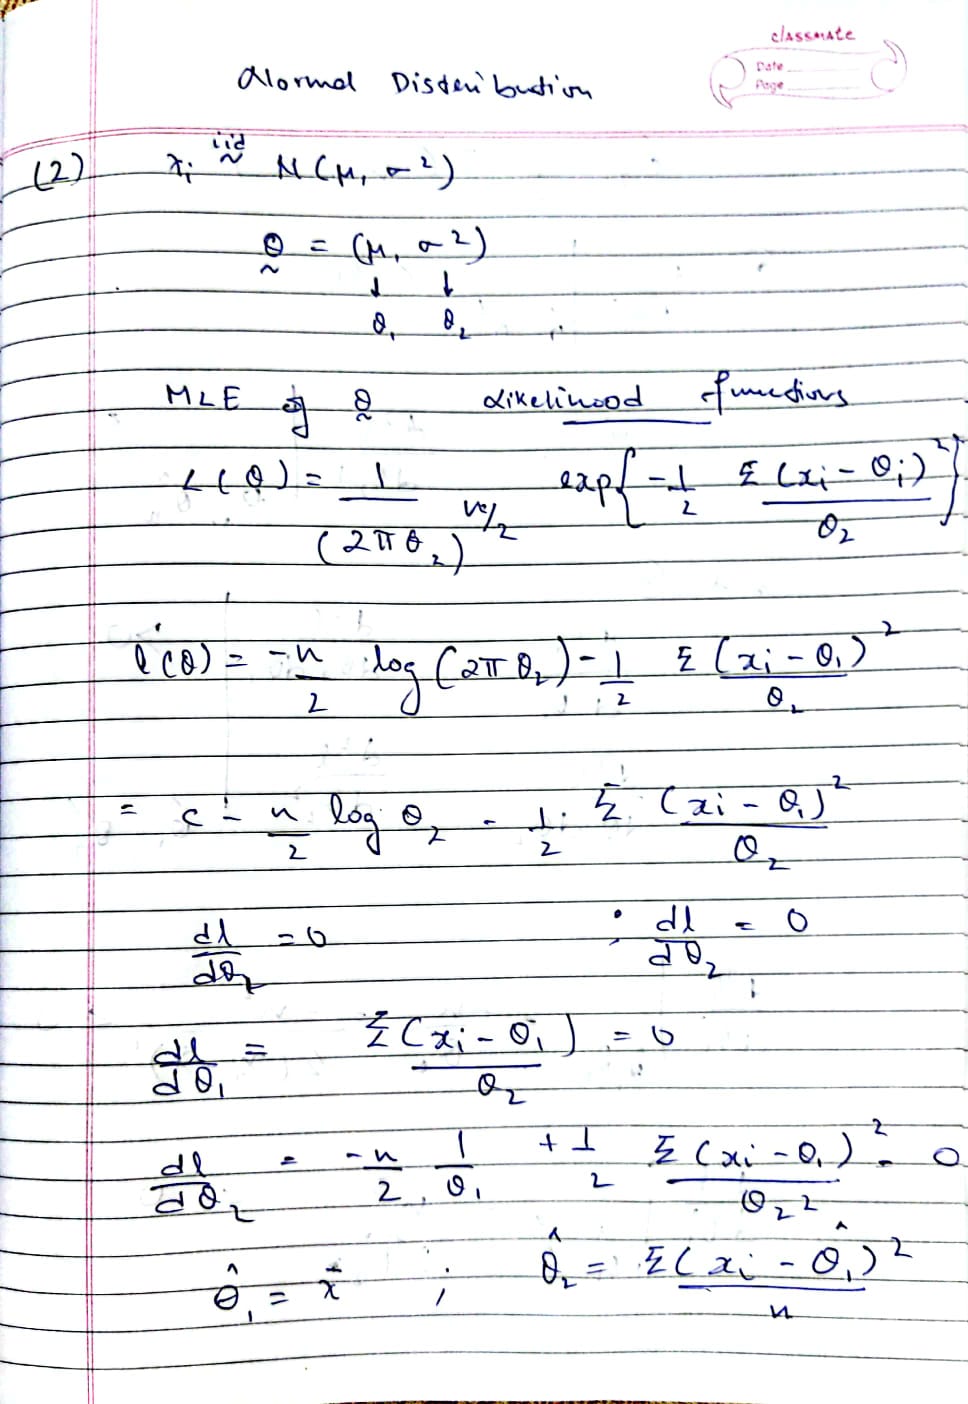 classmate
Date
Page
Normal Distribution
(2) xᵢ iid ~ N(μ, σ²)
θ̰ = (μ, σ²)
↓ ↓
θ₁ θ₂
MLE of θ̰ Likelihood functions
L(θ) = 1/(2πθ₂)^(n/2) exp{-1/2 Σ(xᵢ - θᵢ)²/θ₂}
l(θ) = -n/2 log(2πθ₂) - 1/2 Σ(xᵢ - θ₁)²/θ₂
= c - n/2 log θ₂ - 1/2 Σ(xi - θ₁)²/θ₂
dl/dθ₂ = 0 ; dl/dθ₂ = 0
dl/dθ₁ = Σ(xᵢ - θ₁)/θ₂ = 0
dl/dθ₂ = -n/2 . 1/θ₁ + 1/2 Σ(xi - θ₁)²/θ₂² = 0
θ̂₁ = x̄ ; θ̂₂ = Σ(xi - θ̂₁)²/n